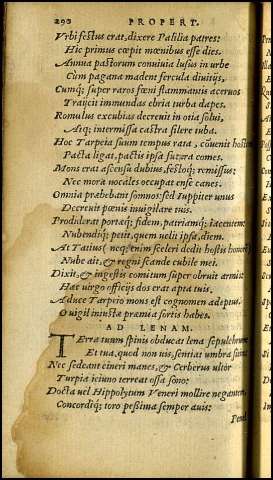 290 PROPERT.
Vrbi festus erat, dixere Palilia patres:
Hic primus cœpit mœnibus esse dies.
Annua pastorum conuiuia lusus in urbe
Cum pagana madent fercula diuitijs,
Cumq; super raros fœni flammantis aceruos
Traijcit immundas ebria turba dapes.
Romulus excubias decreuit in otia solui,
Atq; intermissa castra silere tuba.
Hoc Tarpeia suum tempus rata, conuenit hostem
Pacta ligat, pactis ipsa futura comes.
Mons erat ascensu dubius, festoq; remissus:
Nec mora uocales occupat ense canes.
Omnia præbebant somnos: sed Iuppiter unus
Decreuit pœnis inuigilare tuis.
Prodiderat portæq; fidem, patriamq; iacentem:
Nubendiq; petit, quem uelit ipsa, diem.
At Tatius (neq; enim sceleri dedit hostis honorem)
Nube ait, & regni scande cubile mei.
Dixit, & ingestis comitum super obruit armis:
Hæc uirgo officijs dos erat apta tuis.
A duce Tarpeio mons est cognomen adeptus,
O uigil iniustæ præmia sortis habes.
AD LENAM.
TErra tuum spinis obducat lena sepulchrum
Et tua, quod non uis, sentiat umbra sitim:
Nec sedeant cineri manes, & Cerberus ultor
Turpia ieiuno terreat ossa sono:
Docta uel Hippolytum Veneri mollire negantem,
Concordiq; toro pessima semper auis:
Pene